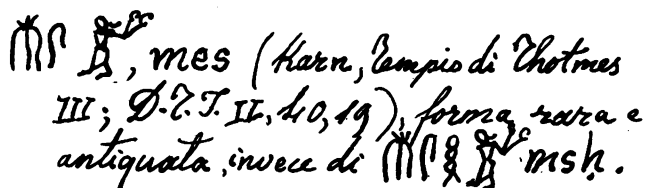 𓄟𓋴, mes (Karn, Tempio di Thotmes
III; II, 40, 19), forma rara e
antiquata, invece di 𓄟𓋴𓎛 msḥ.